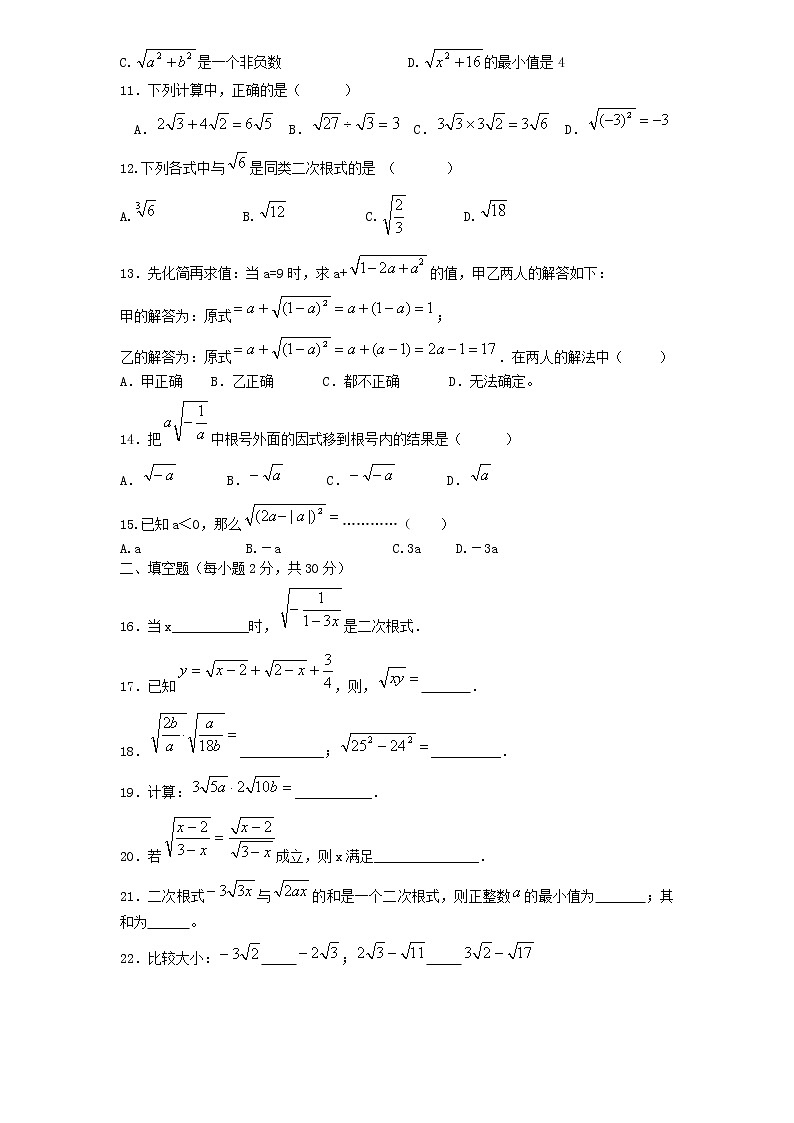 C. √(a²+b²) 是一个非负数 D. √(x²+16) 的最小值是 4
11．下列计算中，正确的是（ ）
A．2√3+4√2=6√5 B．√27÷√3=3 C．3√3×3√2=3√6 D．√((−3)²)=−3
12.下列各式中与√6是同类二次根式的是 （ ）
A.∛6 B.√12 C.√(2/3) D.√18
13．先化简再求值：当 a=9 时，求 a+√(1−2a+a²) 的值，甲乙两人的解答如下：
甲的解答为：原式=a+√((1−a)²)=a+(1−a)=1；
乙的解答为：原式=a+√((1−a)²)=a+(a−1)=2a−1=17．在两人的解法中（ ）
A．甲正确 B．乙正确 C．都不正确 D．无法确定。
14．把 a√(−1/a) 中根号外面的因式移到根号内的结果是（ ）
A．√(−a) B．−√a C．−√(−a) D．√a
15.已知 a＜0，那么√((2a−|a|)²)=…………（ ）
A.a B.－a C.3a D.－3a
二、填空题（每小题 2 分，共 30 分）
16．当 x___________时，√(−1/(1−3x)) 是二次根式．
17．已知 y=√(x−2)+√(2−x)+3/4，则，√(xy)=_______．
18．√(2b/a)·√(a/18b)=____________；√(25²−24²)=__________．
19．计算：3√(5a)·2√(10b)=___________．
20．若√((x−2)/(3−x))=√(x−2)/√(3−x) 成立，则 x 满足_______________．
21．二次根式−3√(3x) 与√(2ax) 的和是一个二次根式，则正整数 a 的最小值为_______；其
和为______。
22．比较大小：−3√2_____−2√3；2√3−√11_____3√2−√17